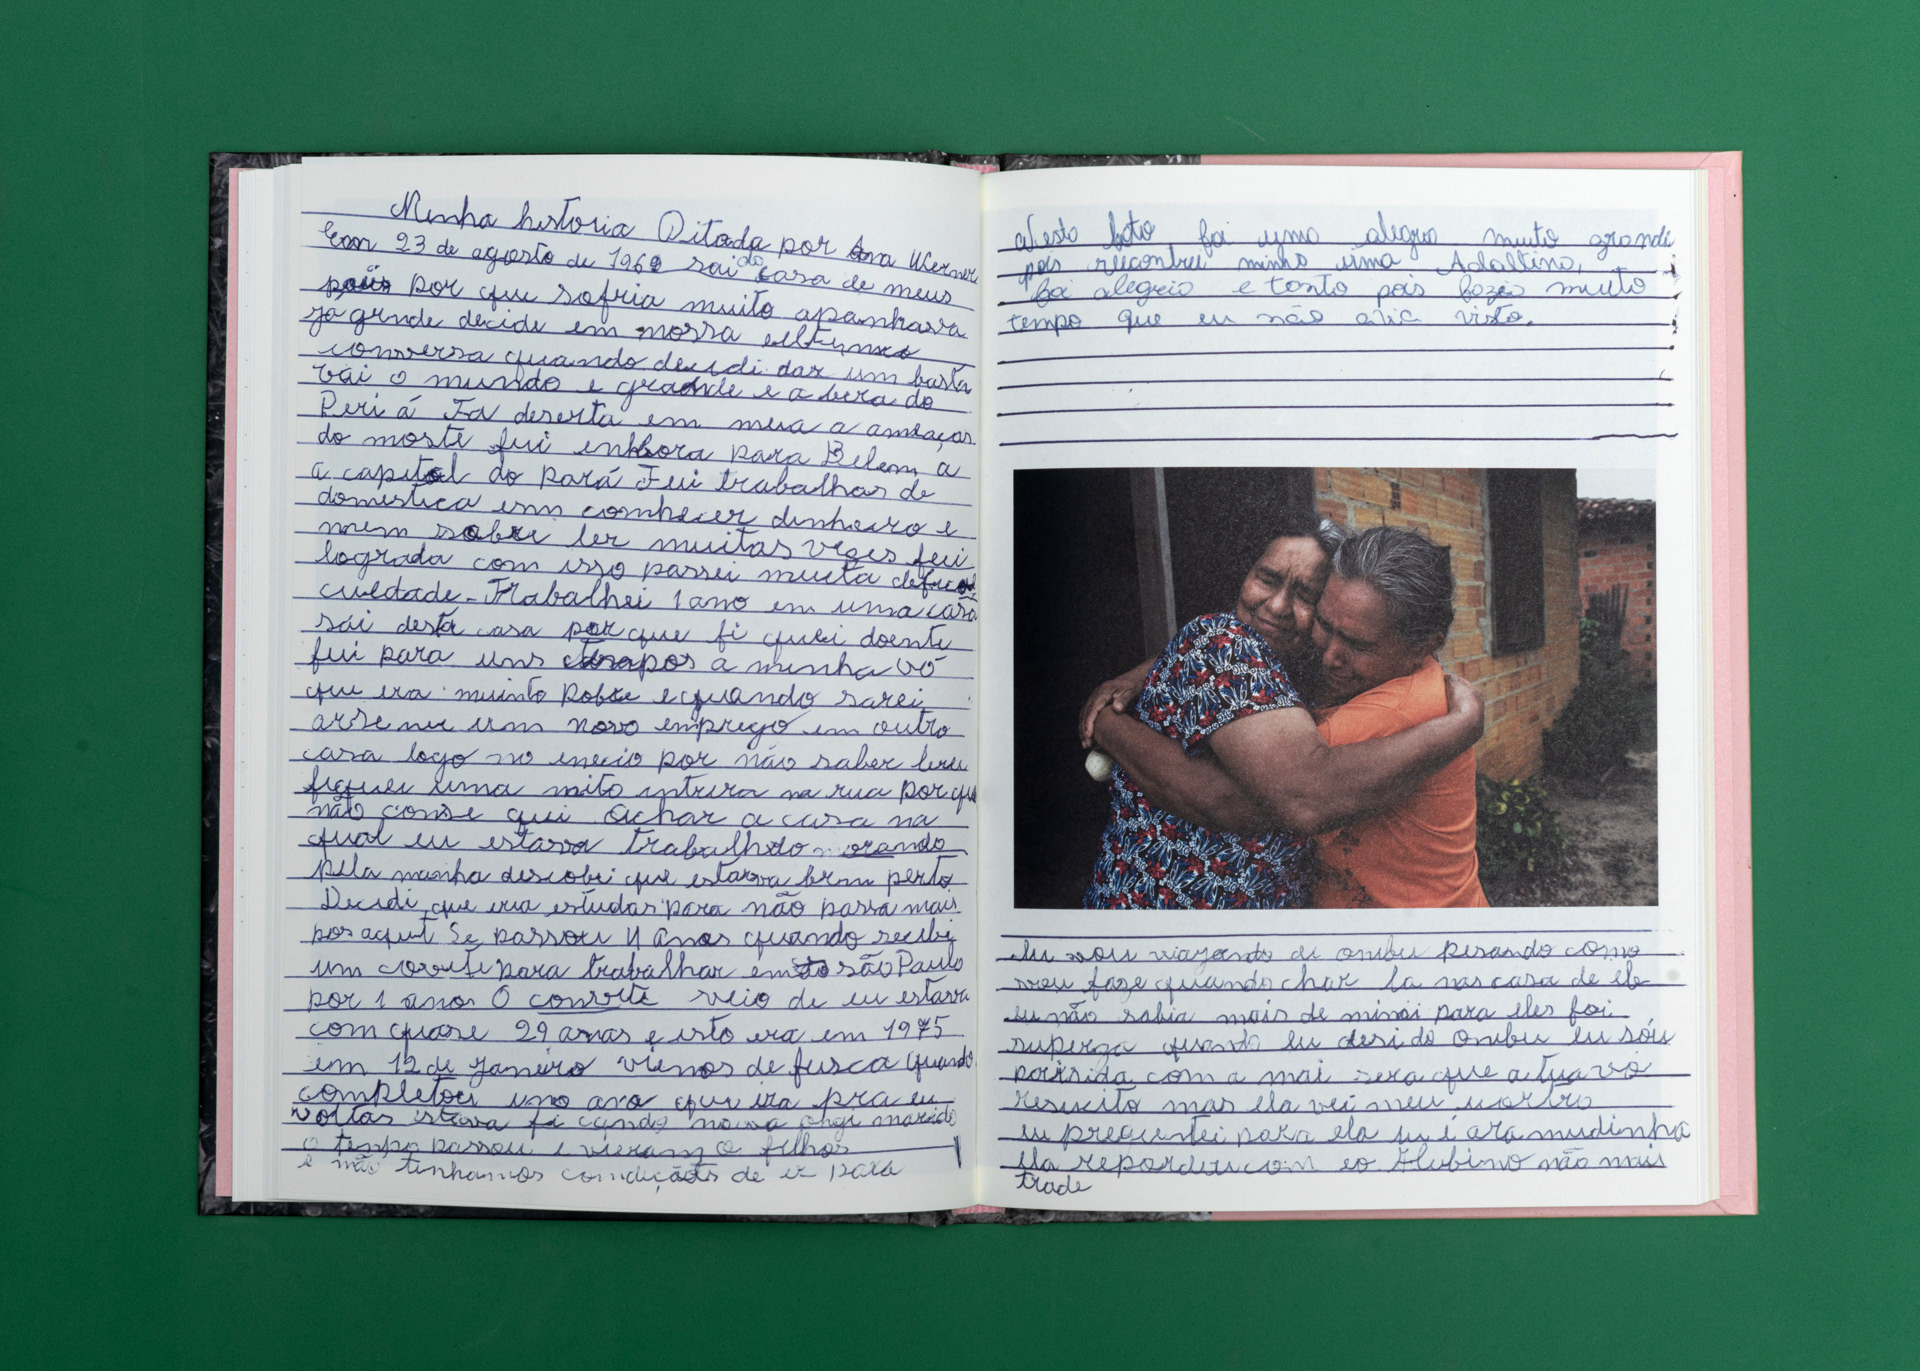 Minha historia Ditada por Ana Werner
Em 23 de agosto de 1969 sai da casa de meus
pais por que sofria muito apanhava
ja grnde decide em nossa
conversa quando decidi dar um basta
vai o mundo e grande e a bera do
Peri á Foi deserta em meia a ameaças
do moste fui enbora para Belem a
a capital do Pará Fui trabalhar de
domestica sem comhecer dinheiro e
nem sabre ler muitas vezes fui
lograda com isso passei muita
culdade. Trabalhei 1 ano em uma casa
sai desta casa por que fi quei doente
fui para uns tempos a minha vó
que era muinto Pobre e quando sarei
arse nei um novo emprego em outro
casa logo no enecio por não saber lereu
fiquei uma noito inteira na rua por que
não conse qui achar a casa na
qual eu estava trabalhdo morando
pela manha descobri que estava bem perto
Decidi que eria estudar para não passa mais
por aquit Se passou 11 Anos quando recibi
um convite para trabalhar em são Paulo
por 1 ano. O convite veio de eu estava
com quase 29 anas e isto era em 1975
em 12 de janeiro viemos de fusca quando
completou uno ano que ira pra eu
voltas estava fi cando marido
o tempo passou e vieram o filhos
e não tinhamos condições de ir para
Nesta foto foi uma alegria muito grande
pois rencontrei minha irma Adaltina,
foi alegrio e tonto pois fazia muito
tempo que eu não avia visto.
Eu vou viajando di onibu pesando como
vou faze quando char la nas casa de ele
eu não sabia mais de minoi para eles foi
superza quando eu desi do onibu eu sóu
parisida com a mai sera que a tua vó
resucito mas ela vei meu
eu preguntei para ela
ela repordeu com eo Alubino não mais
trade